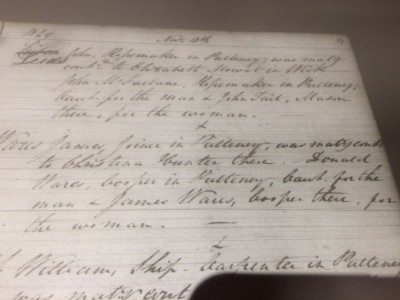 1829. Novr. 15th
John, Shipmaker in Pulteney; was maty
contd. to Elizabeth Mowat in Wick
John McFarlane, Shipmaker in Pulteney;
caut. for the man & John Tait, Mason
there, for the woman.
Wares James, joiner in Pulteney; was maty contd
to Christian Hunter there. Donald
Wares, cooper in Pulteney, caut. for the
man & James Wares, cooper there, for
the woman.
William, Ship-Carpenter in Pulteney
was maty cont